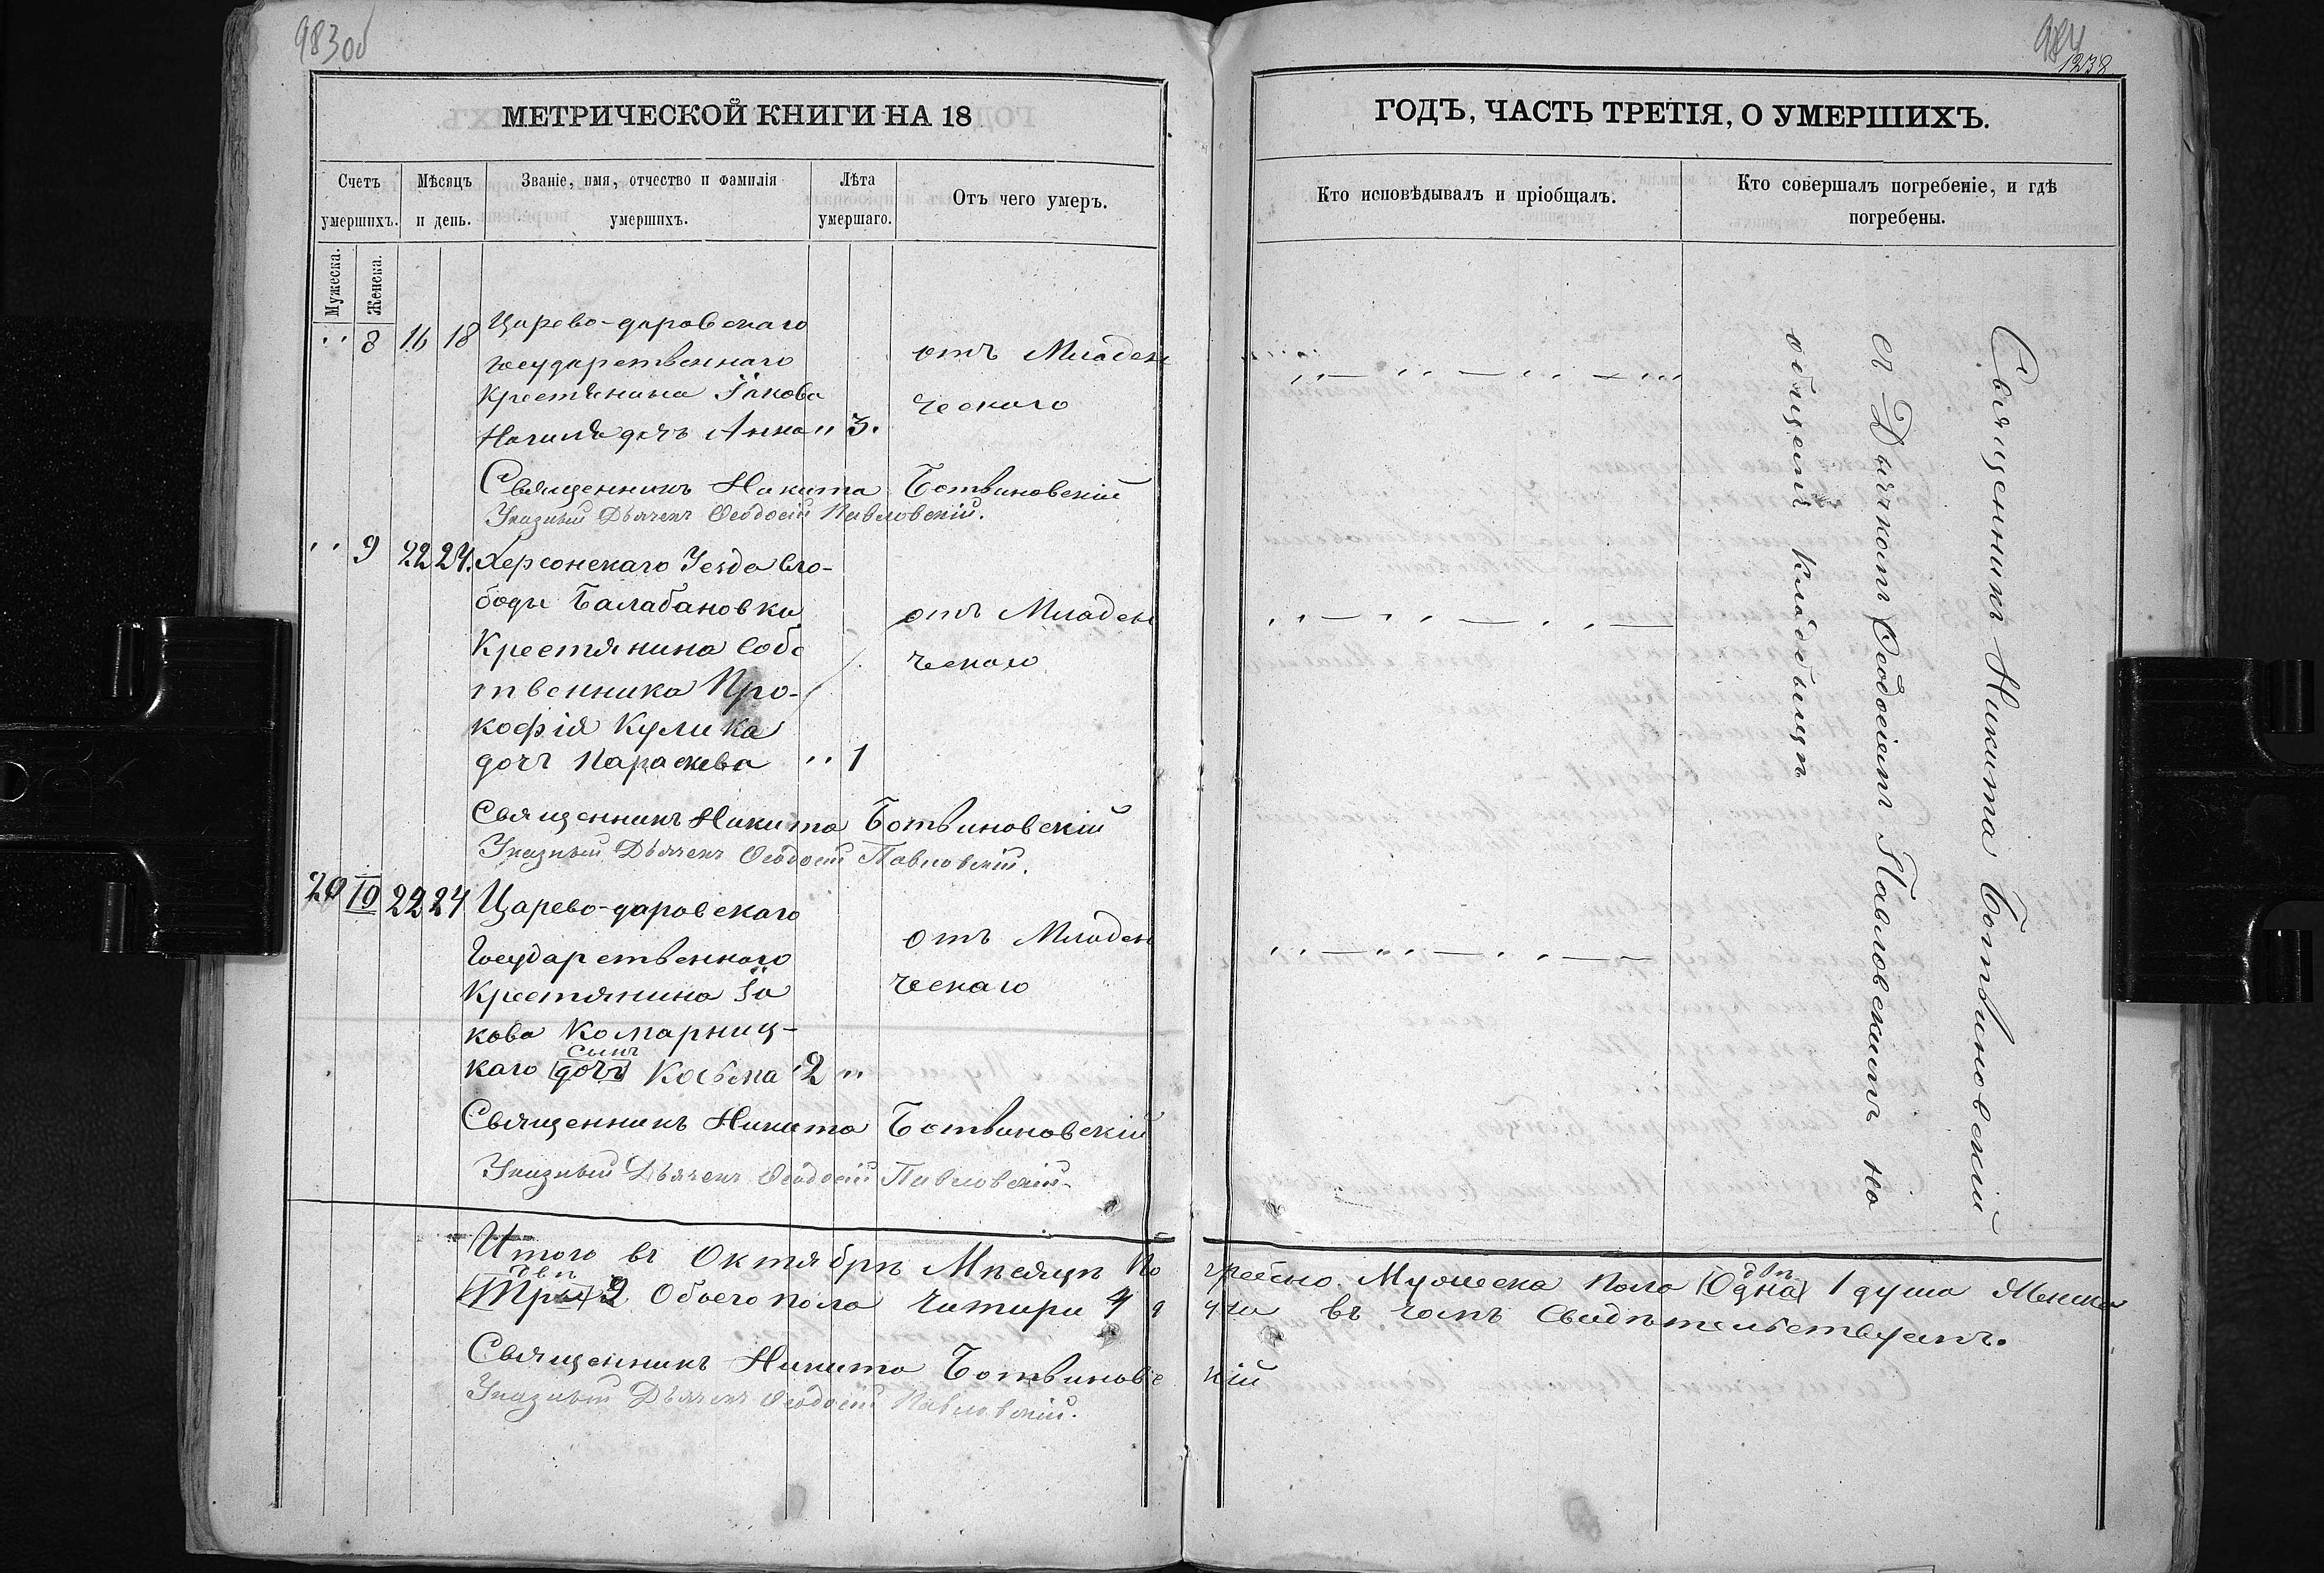 983об
МЕТРИЧЕСКОЙ КНИГИ НА 18
Счетъ умершихъ.
Мѣсяцъ и день.
Званіе, имя, отчество и фамилія умершихъ.
Лѣта умершаго.
Отъ чего умеръ.
Мужеска.
Женска.
" 8 16 18 Царево-даровскаго
государственнаго
крестянина Іакова
дочъ Анна " 3.
отъ Младен
ческаго
Священникъ Никита Ботвиновскій
Указный Дьячекъ Ѳеодосій Павловскій.
" 9 22 24. Херсонскаго Уезда сло-
боды Балабановки
Крестянина собс
твенника Про-
кофія Кулика
дочъ Параскева " 1
отъ Младен
ческаго
Священникъ Никита Ботвиновскій
Указный Дьячекъ Ѳеодосій Павловскій.
20 10 22 24 Царево-даровскаго
Государственного
Крестянина Іа
кова Комарниц-
сынъ
каго (дочъ) Косьма 2 "
отъ Младен
ческаго
Священникъ Никита Ботвиновскій
Указный Дьячекъ Ѳеодосій Павловскій
Итого въ Октябрѣ Мѣсяцѣ по
двѣ
(Три) 2 Обоего пола читири 4
Священникъ Никита Ботвиновс
Указный Дьячекъ Ѳеодосій Павловскій.
984
1238
ГОДЪ, ЧАСТЬ ТРЕТІЯ, О УМЕРШИХЪ.
Кто исповѣдывалъ и пріобщалъ.
Кто совершалъ погребеніе, и гдѣ
погребены.
Священникъ Никита Ботвиновскій
съ Дьячкомъ Ѳеодосіемъ Павловскимъ на
общемъ кладбищѣ
гребено Мужеска пола (Одна) двѣ 1 душа Женска
въ чомъ Свидѣтельствуемъ.
кій